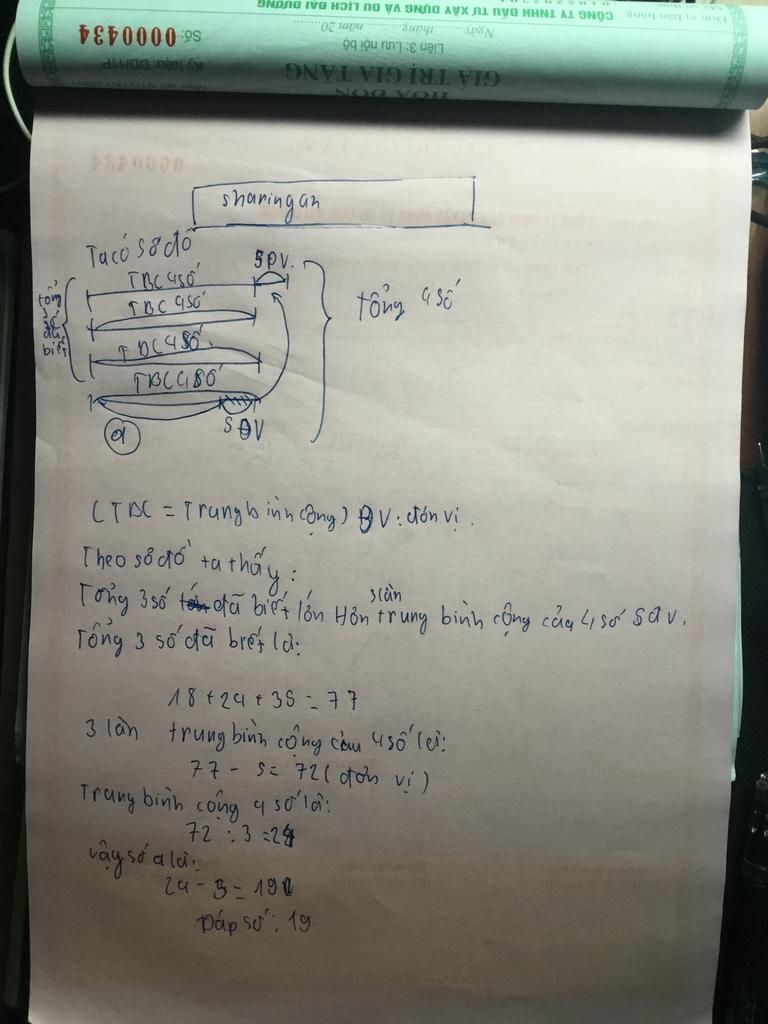 CÔNG TY TNHH ĐẦU TƯ XÂY DỰNG VÀ DU LỊCH ĐẠI DƯƠNG
Đơn vị bán hàng
Ngày........ tháng........ năm 20........
Số: 0000434
Liên 3: Lưu nội bộ
GIÁ TRỊ GIA TĂNG
HÓA ĐƠN
0000434
sharingan
Ta có sơ đồ
5ĐV.
TBC 4 số
TBC 4 số
TBC 4 số.
TBC 4 số
tổng 3 số đã biết
tổng 4 số
a
5 ĐV
(TBC = Trung bình cộng) ĐV: đơn vị.
Theo sơ đồ ta thấy:
3 lần
Tổng 3 số đã biết lớn Hơn trung bình cộng của 4 số 5 đv.
Tổng 3 số đã biết là:
18 + 24 + 35 = 77
3 lần trung bình cộng của 4 số là:
77 - 5 = 72 (đơn vị)
Trung bình cộng 4 số là:
72 : 3 = 24
vậy số a là:
24 - 5 = 19
Đáp số: 19.